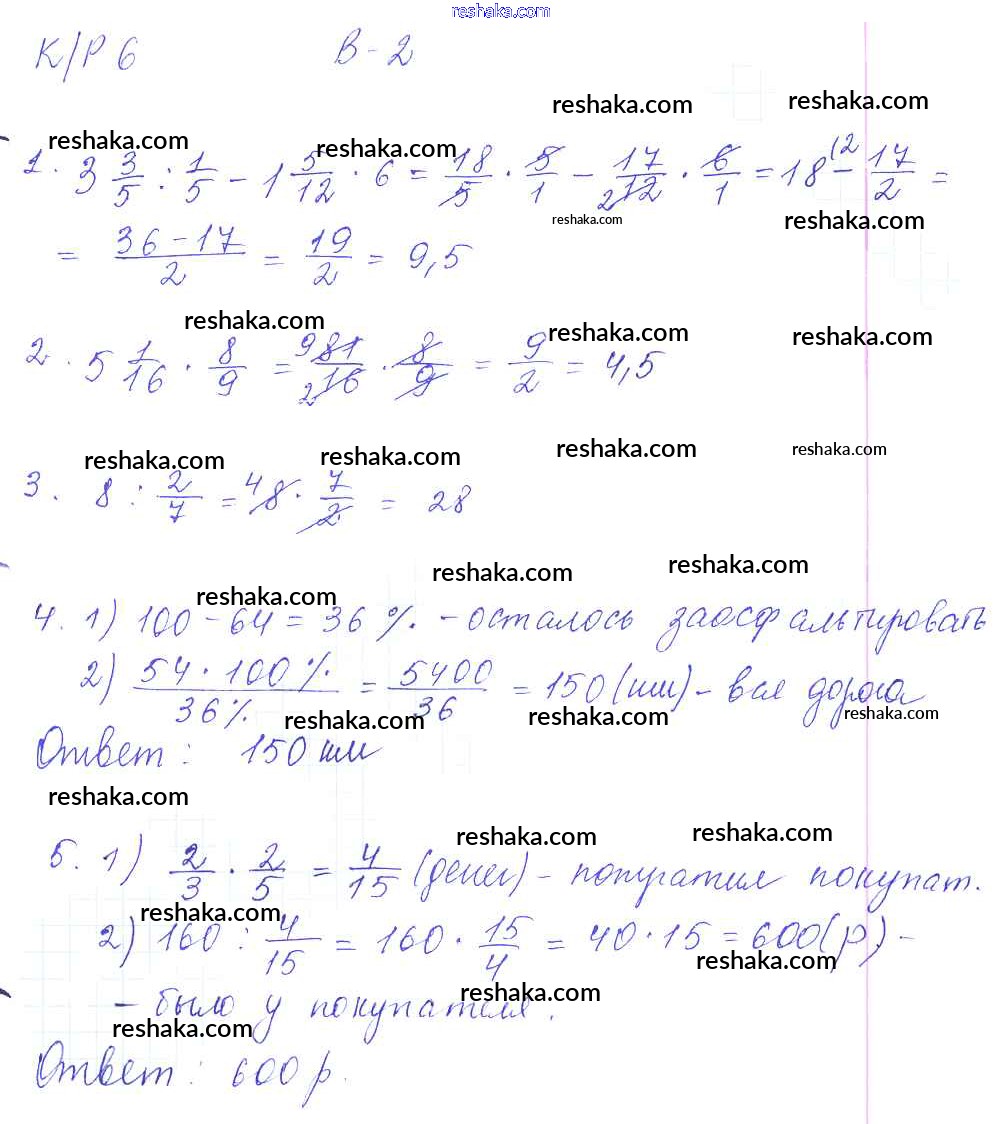 reshaka.com
К/Р 6 В-2
reshaka.com reshaka.com
reshaka.com reshaka.com
1. 3 3/5 : 1/5 - 1 5/12 · 6 = 18/5 · 5/1 - 17/12 · 6/1 = 18 - 17/2 =
reshaka.com reshaka.com
= 36-17/2 = 19/2 = 9,5
reshaka.com reshaka.com reshaka.com
2. 5 1/16 · 8/9 = 81/16 · 8/9 = 9/2 = 4,5
reshaka.com reshaka.com reshaka.com reshaka.com
3. 8 : 2/7 = 8 · 7/2 = 28
reshaka.com reshaka.com
reshaka.com
4. 1) 100 - 64 = 36 % - осталось заасфальтировать
2) 54 · 100 % / 36 % = 5400/36 = 150 (км) - вся дорога
reshaka.com reshaka.com reshaka.com
Ответ: 150 км
reshaka.com
reshaka.com reshaka.com
5. 1) 2/3 · 2/5 = 4/15 (денег) - потратил покупат.
reshaka.com
2) 160 : 4/15 = 160 · 15/4 = 40 · 15 = 600 (р) -
reshaka.com
- было у покупателя.
reshaka.com
reshaka.com
Ответ: 600 р.